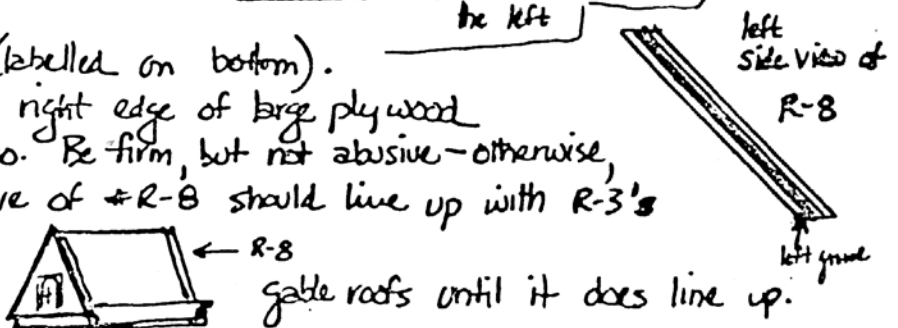 the left
left
side view of
R-8
(labelled on bottom).
right edge of large plywood
o. Be firm, but not abusive - otherwise,
ve of #R-8 should line up with R-3's
← R-8
left groove
gable roofs until it does line up.